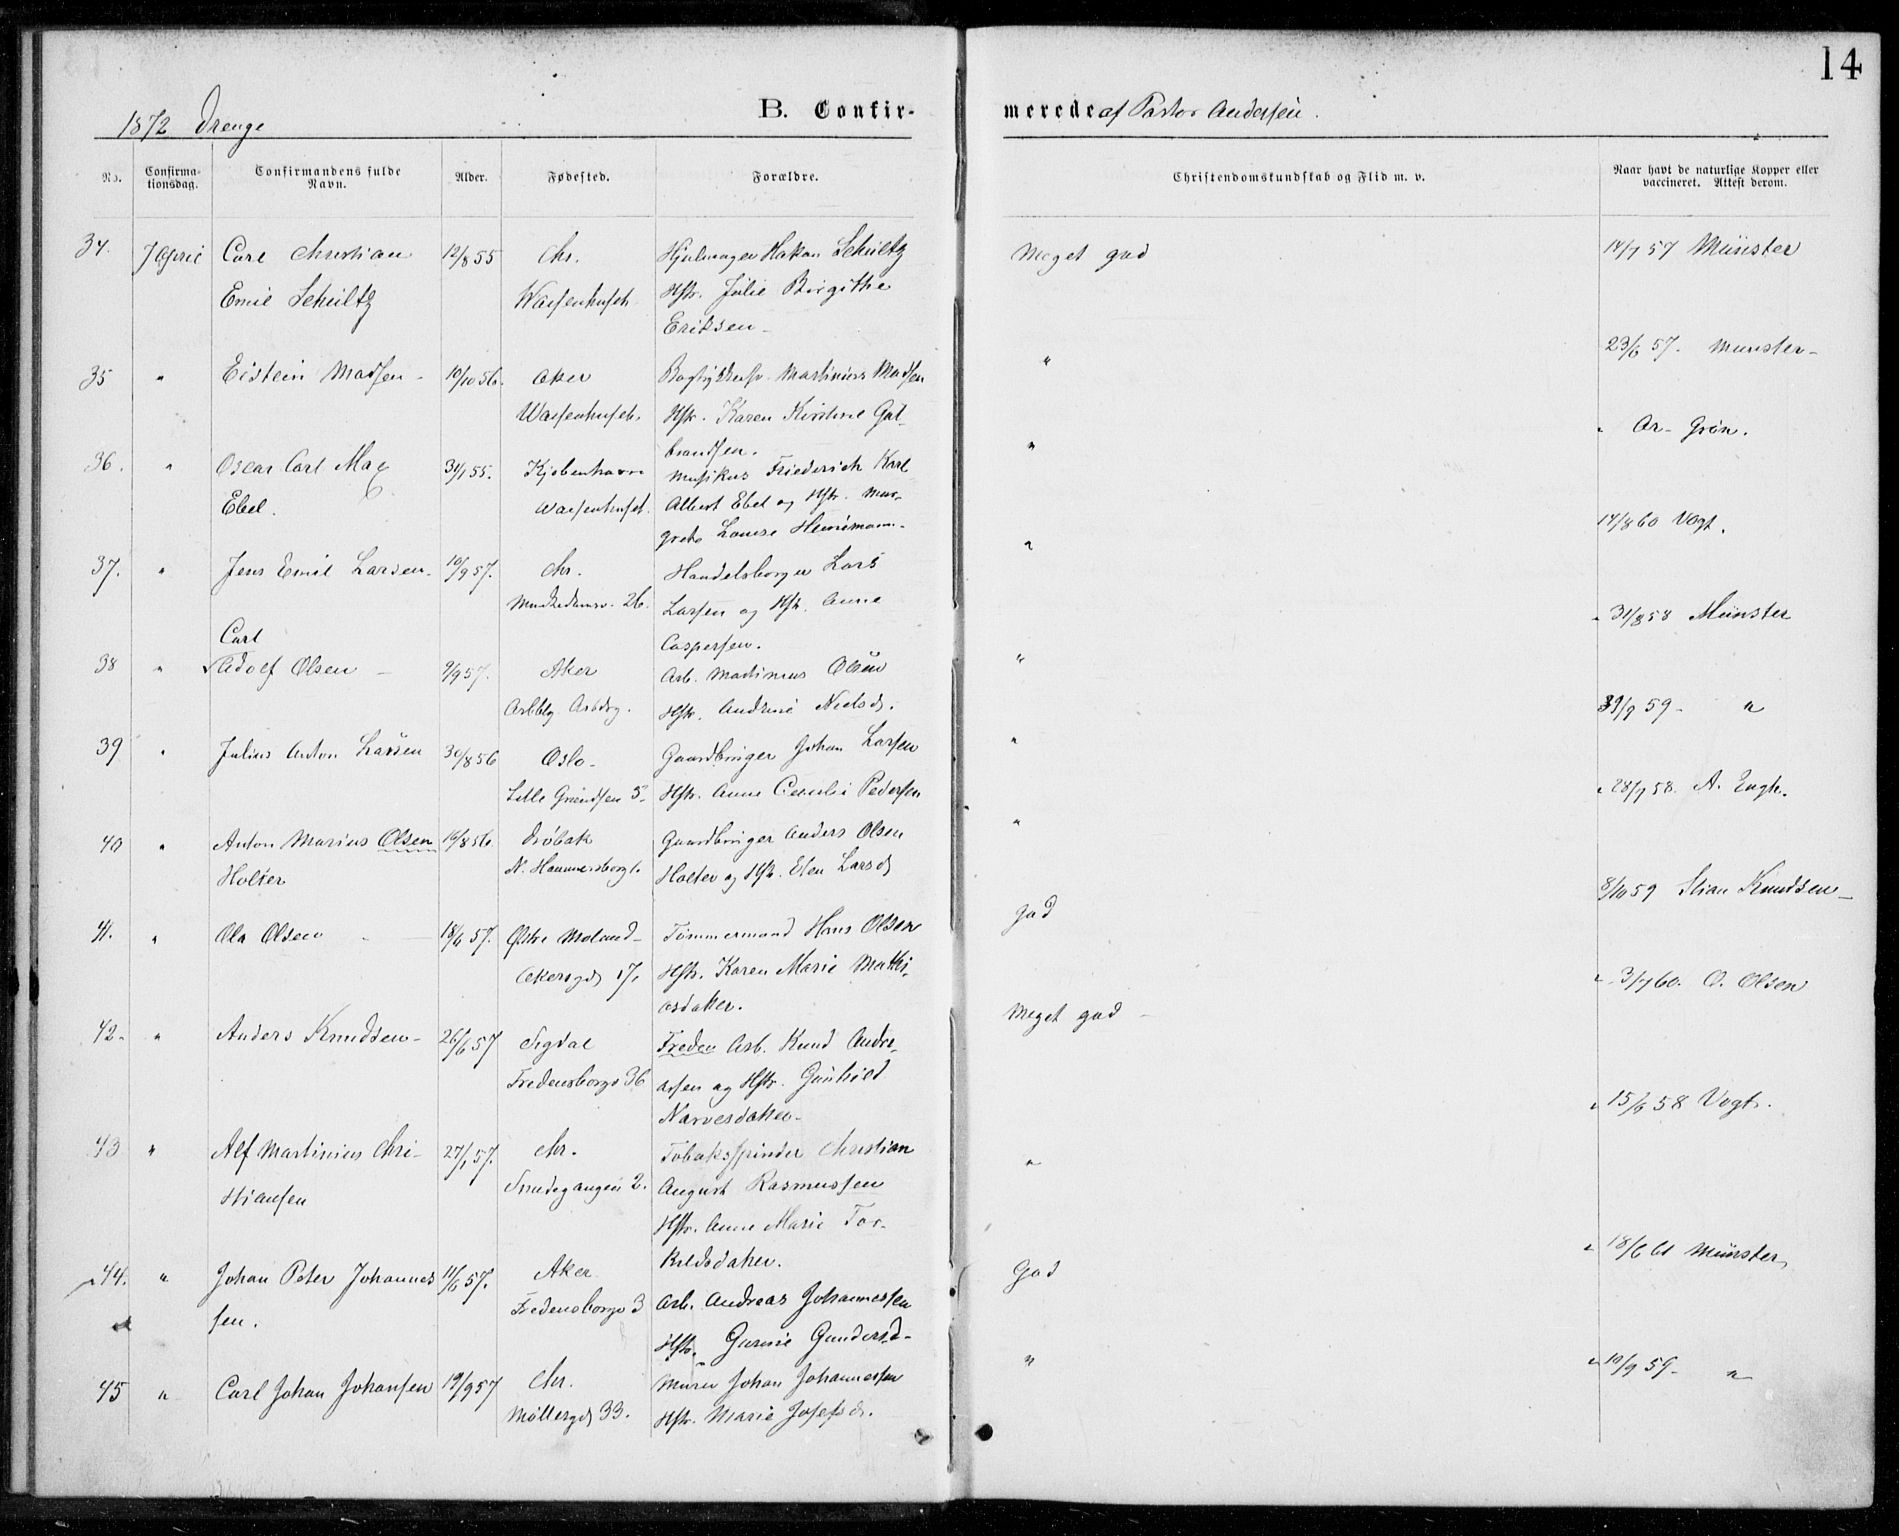 14
1872 Drenge
B. Confirmerede af Pastor Andersen.
No. Confirmationsdag. Confirmandens fulde Navn. Alder. Fødested. Forældre. Christendomskundskab og Flid m. v. Naar havt de naturlige Kopper eller vaccineret. Attest derom.
34. 7 April Carl Christian 12/8 55 Chr. Hjulmager Hakon Schultz Meget god 14/7 57 Münster
Emil Schultz Waisenhuset. Hstr. Julie Birgithe
Eriksen
35 " Eistein Madsen 10/10 56. Aker Martinius Madsen " 23/6 57. Munster
Waisenhuset. Hstr. Karen Kirstine Gul-
brandsen.
36. " Oscar Carl Max 31/1 55. Kjøbenhavn Musikus Friederich Karl " " Ar- Grøn.
Ebel. Waisenhuset. Albert Ebel og Hstr. Mar-
greta Louise Heinemann.
37. " Jens Emil Larsen. 10/9 57. Chr. Handelsborger Lars " 14/8 60 Vogt.
26. Larsen og Hstr. Anne
Caspersen.
Carl
38 " Adolf Olsen 9/9 57. Aker Arb. Martinius Olsen " " 31/8 58 Münster
Hstr. Andrine Nielsd.
39 " Julius Anton Larsen 30/8 56 Oslo Gaardbruger Johan Larsen " 31/7 59 "
Lille Grændsen 5 Hstr. Anne Cecilie Pedersen
40 " Anton Marius Olsen 16/8 56. Drøbak Gaardbruger Anders Olsen " " 28/7 58. A. Engh.
Holter N. Hammersborg 1. Holter og Hstr. Elen Larsd
41. " Ola Olsen 18/6 57. Østre Moland Tømmermand Hans Olsen god 8/10 59 Stian Knudsen
Akersgd 17. Hstr. Karen Marie Mathi-
asdatter.
42. " Anders Knudsen 26/6 57 Sigdal Arb. Knud Andre- Meget god " 3/7 60. O. Olsen
Fredensborgv 36 asen og Hstr. Gunhild
Narvesdatter
43 " Alf Martinius Chri- 27/1 57. Chr. Tobaksspinder Christian " " 15/6 58 Vogt.
stiansen Smedegangen 2. August Rasmussen
Hstr. Anne Marie Tor-
kildsdatter.
44. " Johan Peter Johannes 11/6 57. Aker Arb. Andreas Johannessen God " 18/6 61 Münster
sen. Fredensborgv 3 Hstr. Gurine Gundersd
45 " Carl Johan Johansen 19/9 57 Chr. Murer Johan Johannessen " " 10/9 59 "
Møllergd 33. Hstr. Marie Josefsd.